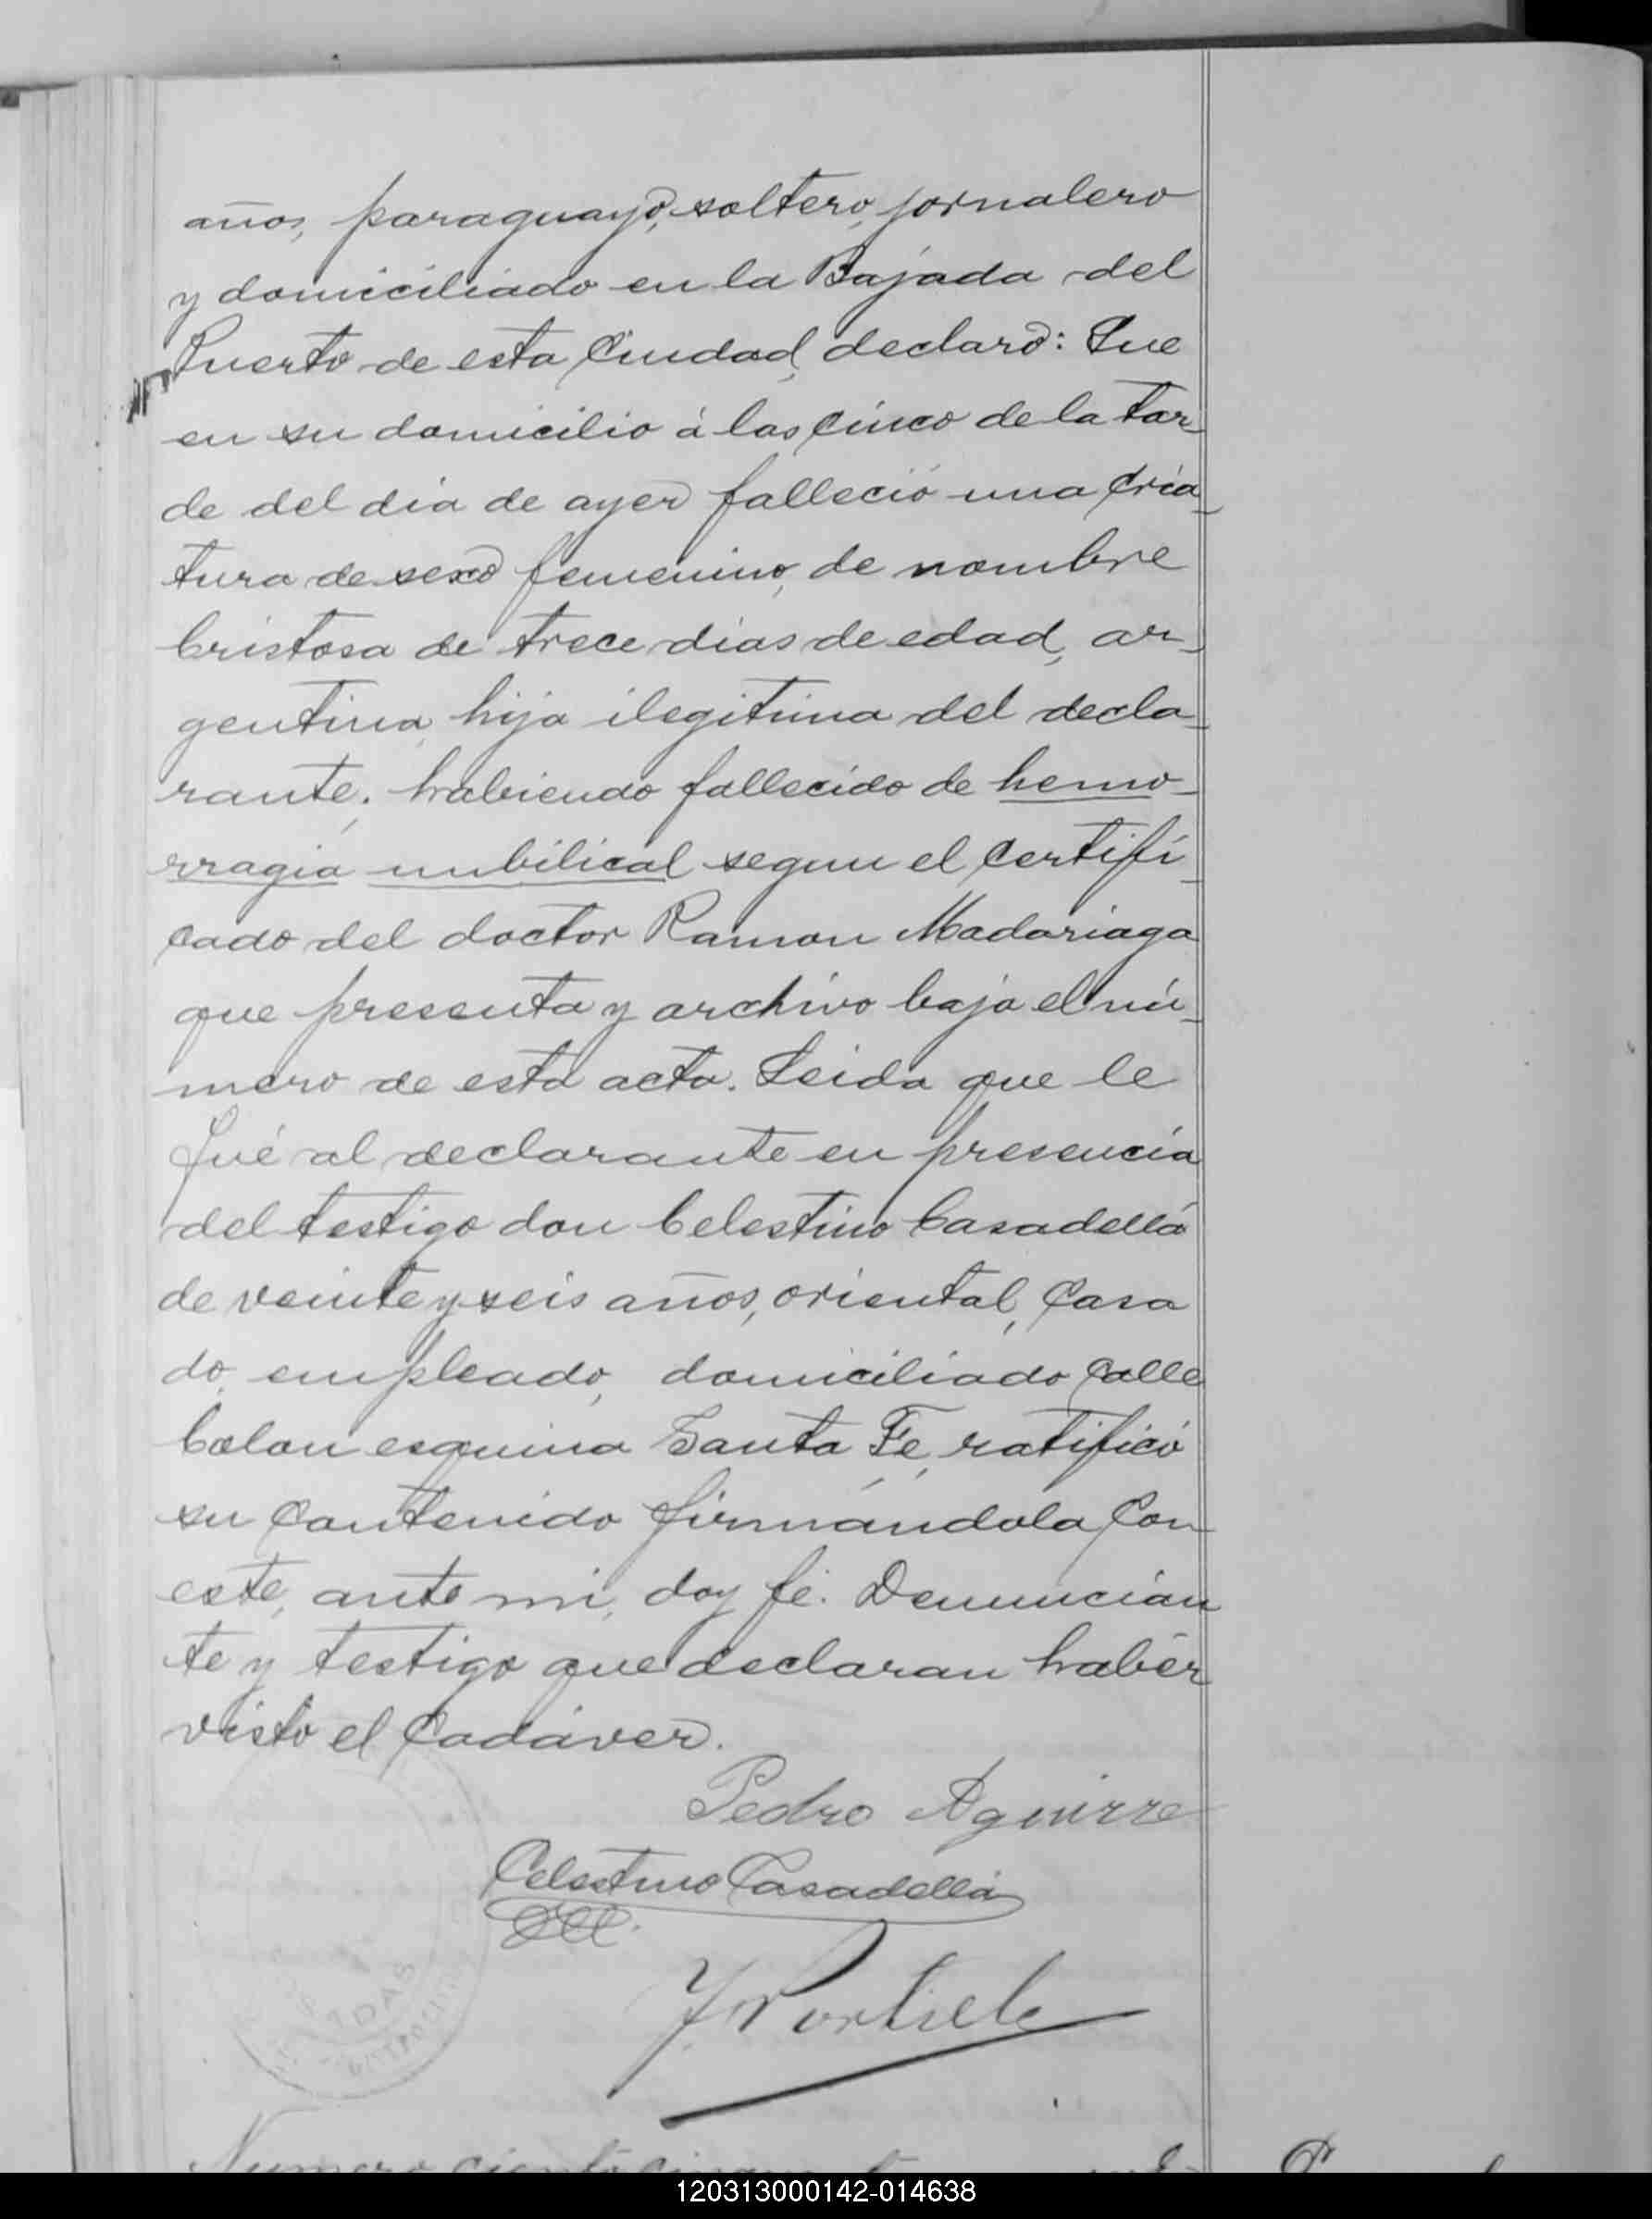 años, paraguayo, soltero, jornalero
y domiciliado en la Bajada del
Puerto de esta Ciudad, declaró: Que
en su domicilio á las cinco de la tar-
de del dia de ayer falleció una cria-
tura de sexo femenino, de nombre
Cristosa de trece dias de edad, ar-
gentina, hija ilegitima del decla-
rante; habiendo fallecido de hemo-
rragia umbilical segun el certifi-
cado del doctor Ramon Madariaga
que presenta y archivo bajo el nú-
mero de esta acta. Leida que le
fué al declarante en presencia
del testigo don Celestino Casadellá
de veinte y seis años, oriental, casa
do, empleado, domiciliado calle
Colon esquina Santa Fe, ratificó
su contenido firmándola con
este, ante mi, doy fé. Denuncian
te y testigo que declaran haber
visto el cadáver.
Pedro Aguirre
Celestino Casadellá
Numero ciento
120313000142-014638